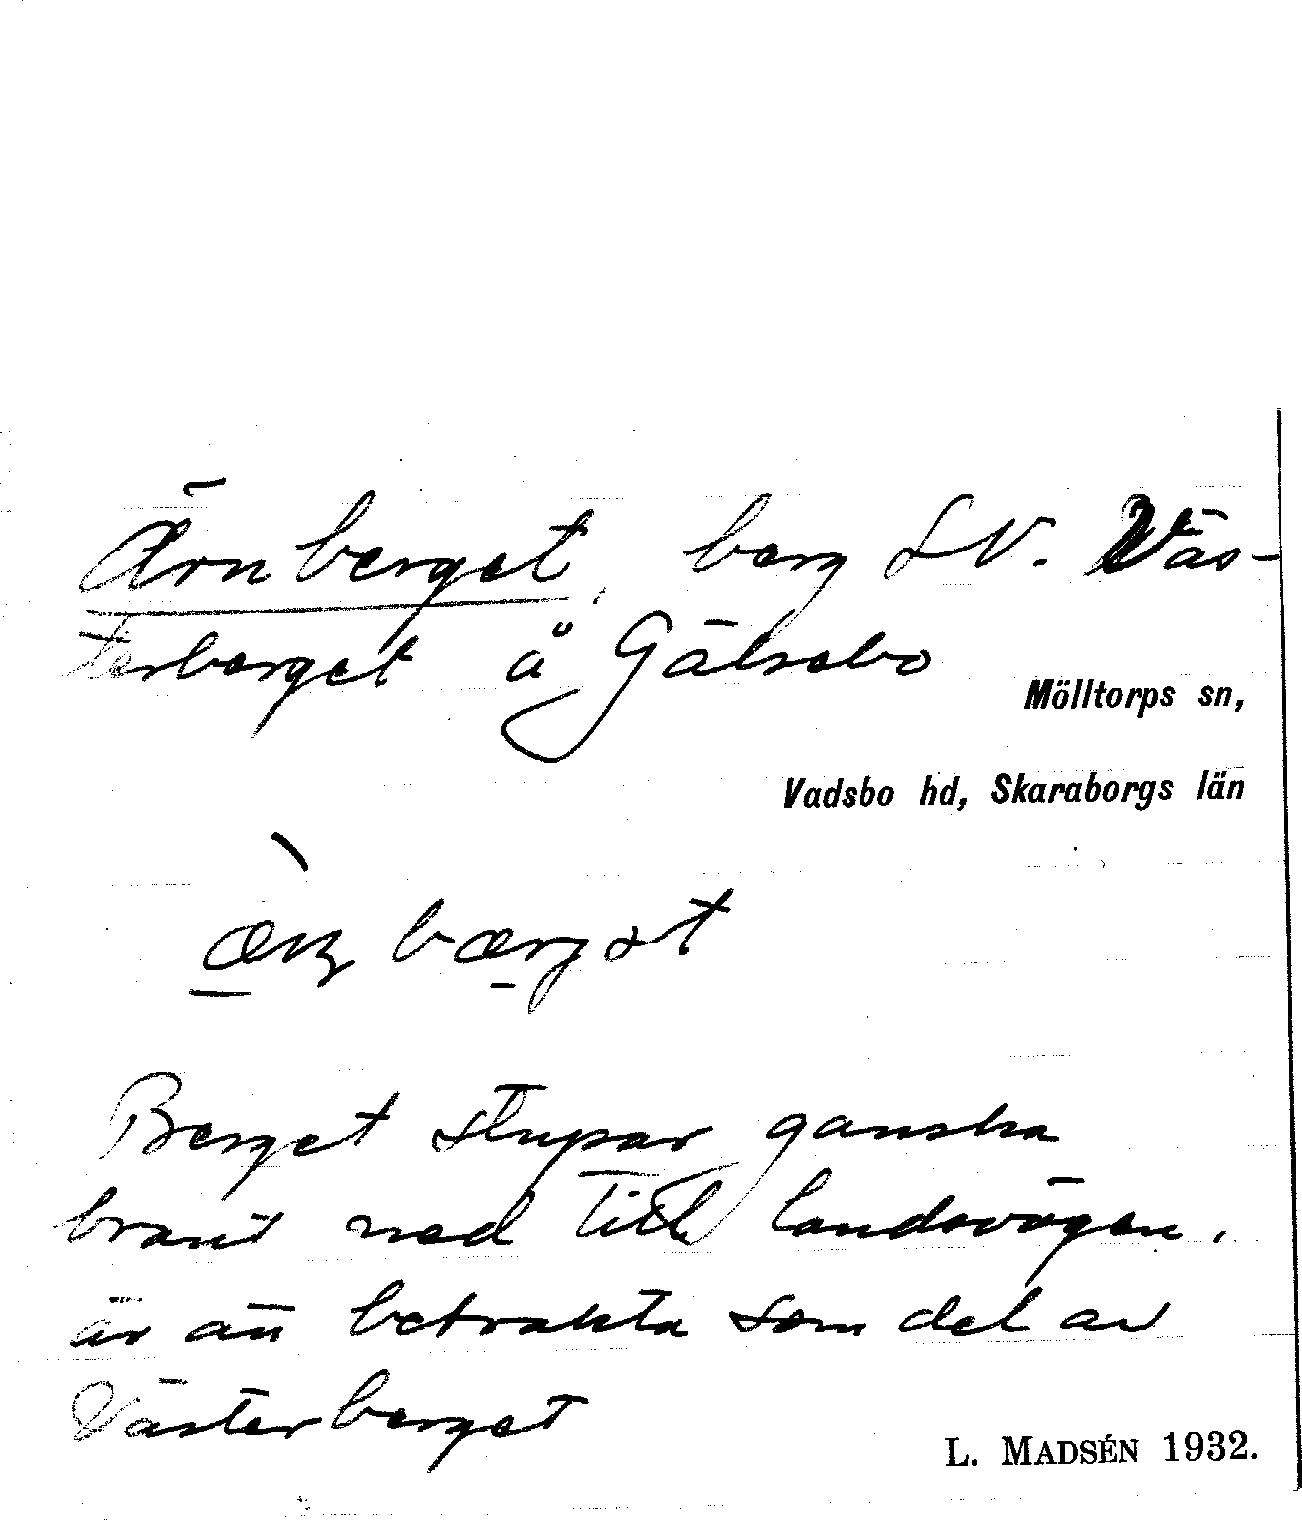 Ärnberget, berg SV. Väs-
terberget å Gälsebo
Mölltorps sn,
Vadsbo hd, Skaraborgs län
bærjət
Berget stupar ganska
brant ned till landsvägen,
är att betrakta som del av
Västerberget
L. MADSÉN 1932.